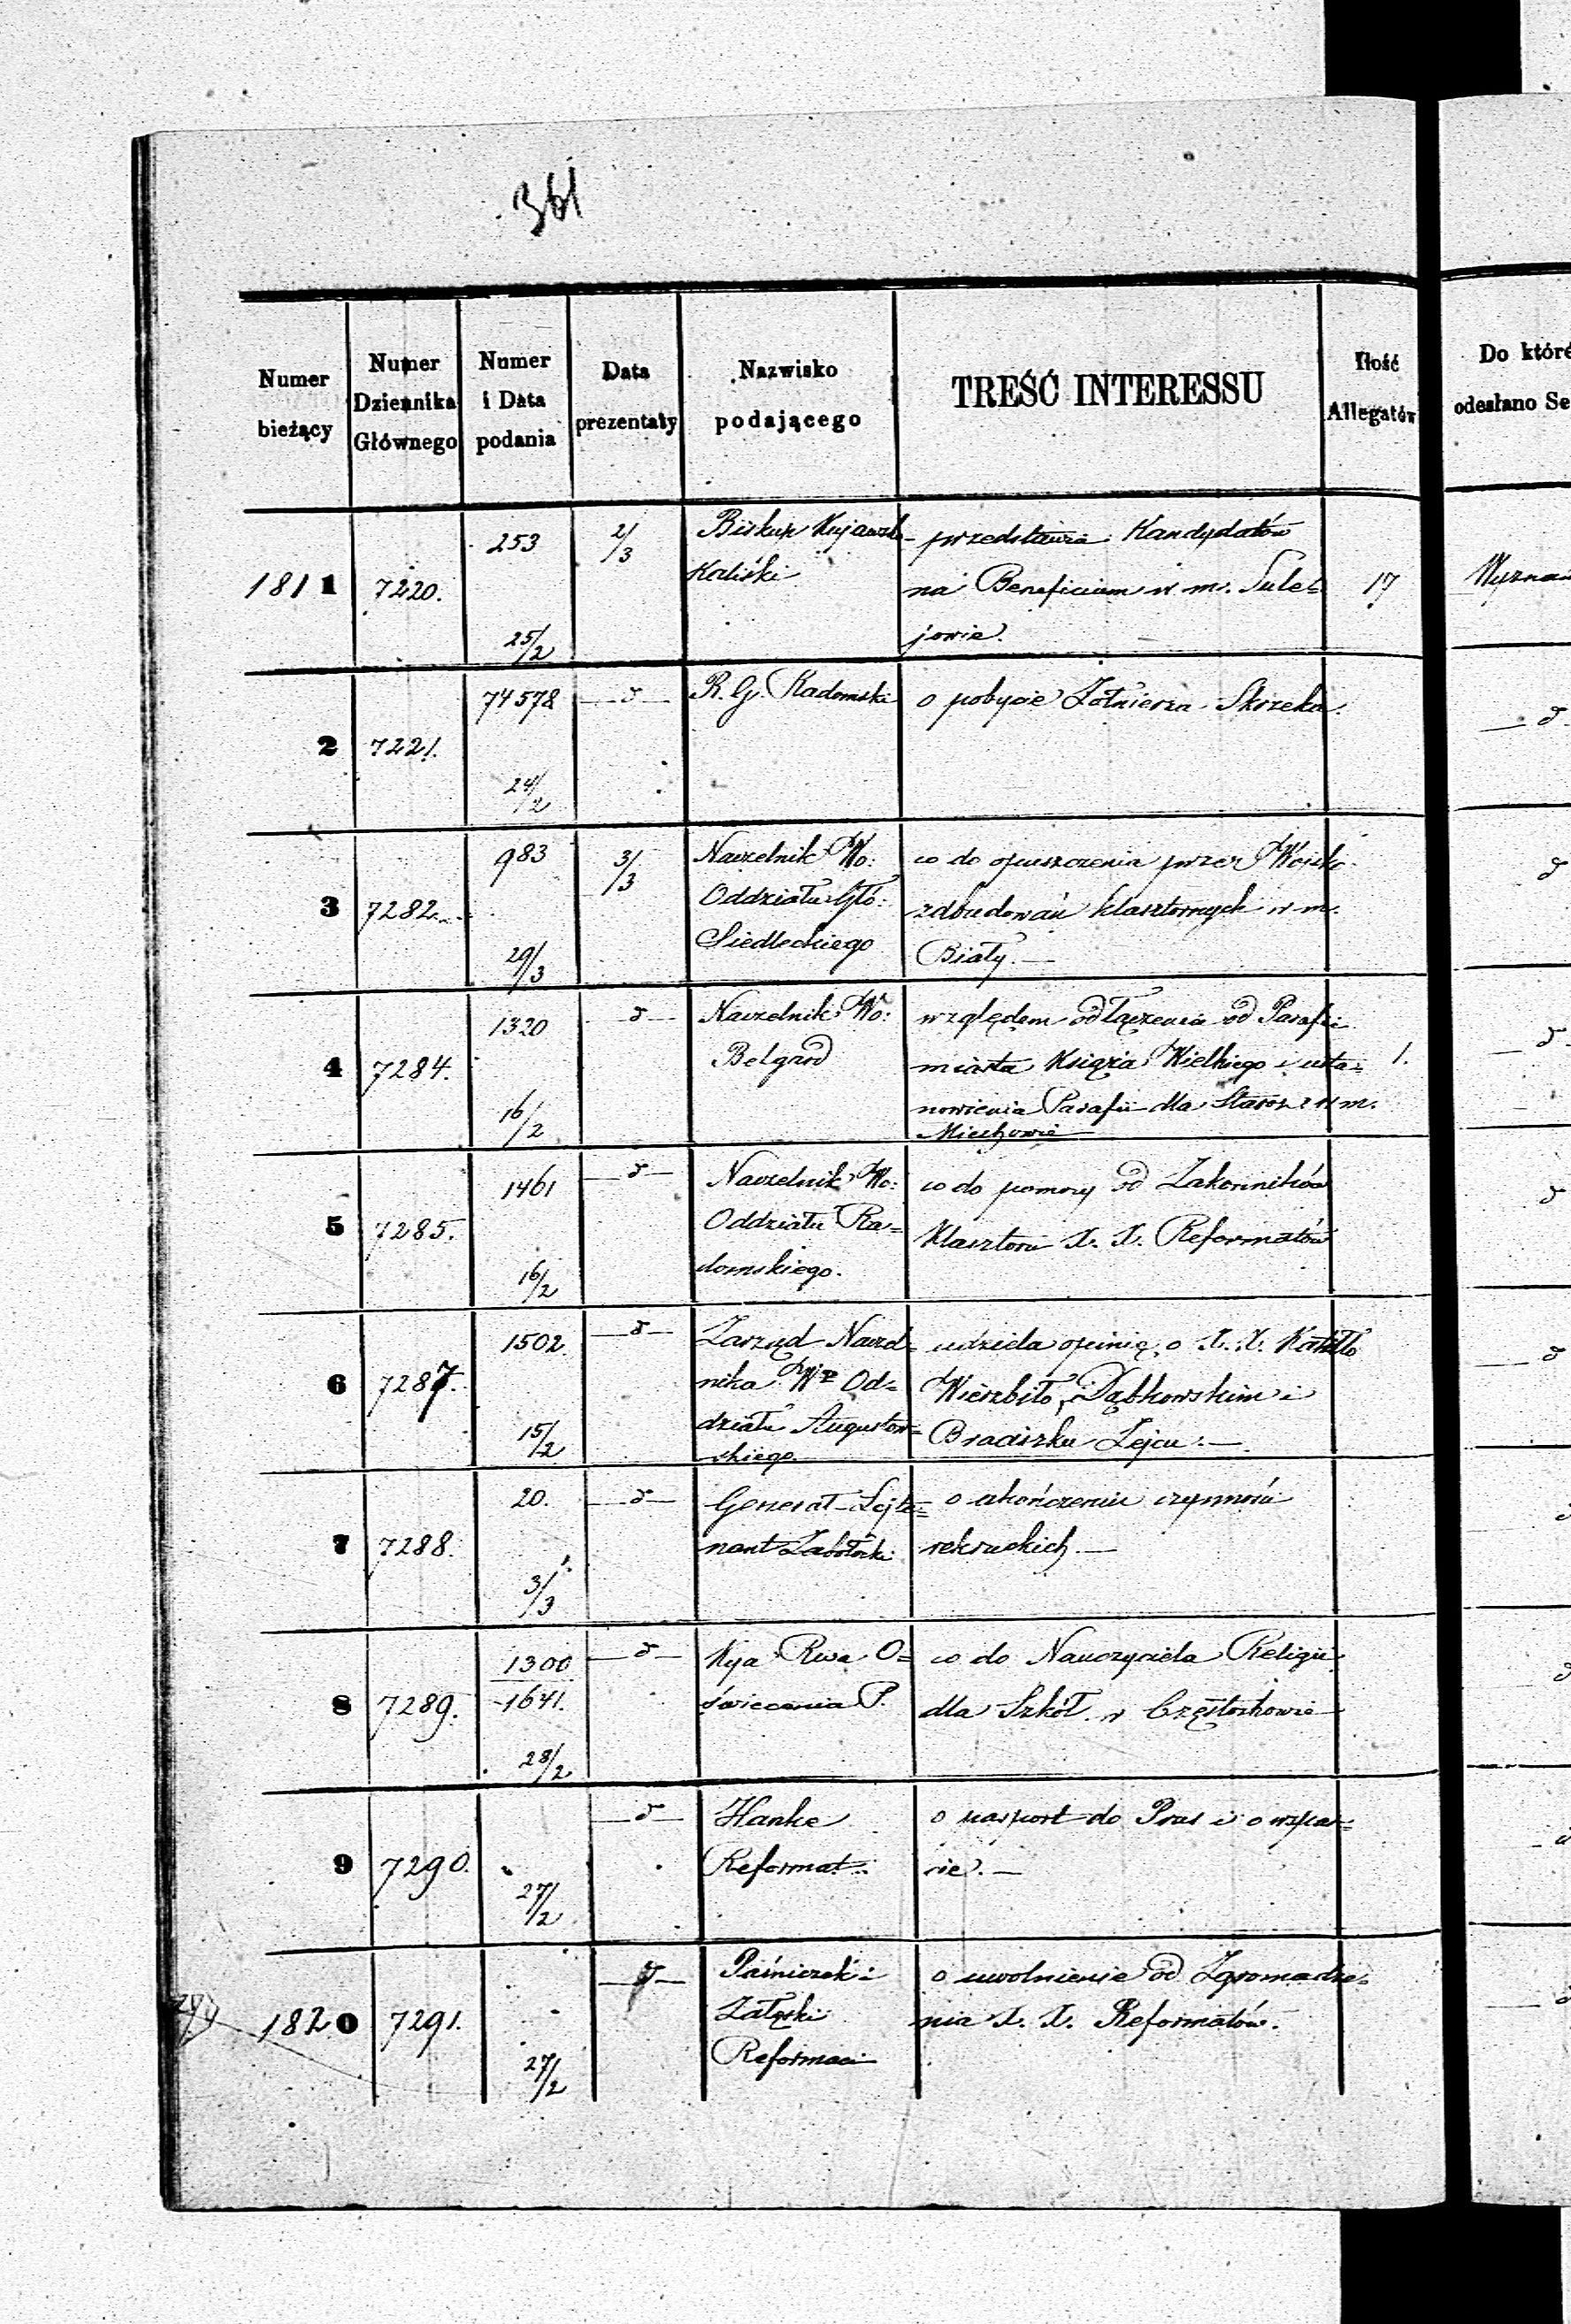 361
Numer bieżący | Numer Dziennika Głównego | Numer i Data podania | Data prezentaty | Nazwisko podającego | TREŚĆ INTERESSU | Ilość Allegatów | Do któré odesłano Se
1811 | 7220. | 253 25/2 | 2/3 | Biskup Kujawsko | przedstawia Kandydatów
Kaliski | na Beneficium w m. Sule= | 17 | Wyznań
jowie.
2 | 7221. | 74578 24/2 | d | R. G. Radomski | o pobycie Żołnierza Skrzeka. | d
3 | 7282. | 983 29/3 | 3/3 | Naczelnik Wo: | co do opuszczenia przez Wojsko | d
Oddziału Głó: | zabudowań klasztornych w m.
Siedleckiego | Biały.—
4 | 7284. | 1320 16/2 | d | Naczelnik Wo: | względem odłączenia od Parafii
Belgard | miasta Książa Wielkiego i usta= | 1. | d
nowienia Parafii dla Staroz: w m.
Miechowie
5 | 7285. | 1461 16/2 | d | Naczelnik Wo: | co do pomocy od Zakonników
Oddziału Ra= | Klasztoru X. X. Reformatów | d
domskiego.
6 | 7287. | 1502. 15/2 | d | Zarząd Naczel= | udziela opinię o X. X.
nika Wo Od= | Wierzbiło, Dąbkowskim i | d
działu Augustow= | Braciszku Zejcu.—
skiego.
7 | 7288. | 20. 3/3 | d | Generał-Lejte= | o ukończeniu czynności
nant Zabołocki | rekruckich.—
8 | 7289. | 1300 1641. 28/2 | d | Kja Rwa O= | co do Nauczyciela Religii
świecenia P. | dla Szkół w Częstochowie
9 | 7290. | 27/2 | d | Hanke | o pasport do Prus i o wspar=
Reformat | cie.—
1820 | 7291. | 27/2 | d | Paśniczek i | o uwolnienie od Zgromadze=
Załęski | nia X. X. Reformatów.
Reformaci